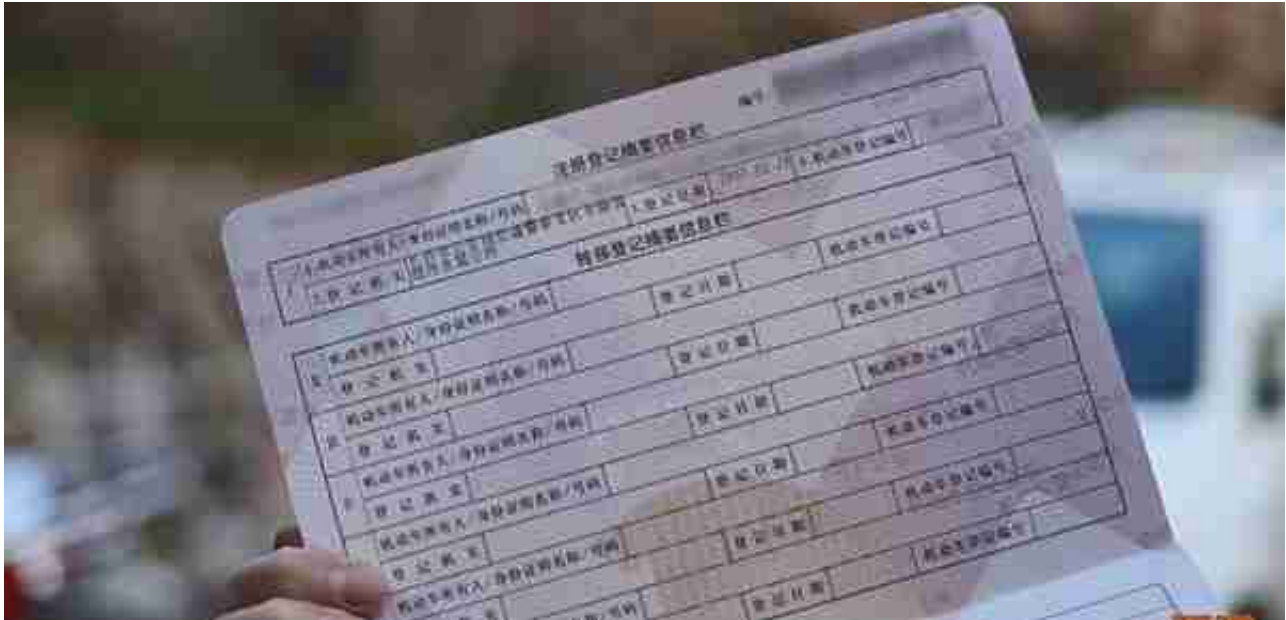 编号
注册登记摘要信息栏
1.机动车所有人/身份证明名称/号码
2.登记机关 3.登记日期 4.机动车登记编号
转移登记摘要信息栏
机动车所有人/身份证明名称/号码
登记机关 登记日期 机动车登记编号
机动车所有人/身份证明名称/号码
登记机关 登记日期 机动车登记编号
机动车所有人/身份证明名称/号码
登记机关 登记日期 机动车登记编号
机动车所有人/身份证明名称/号码
登记机关 登记日期 机动车登记编号
机动车所有人/身份证明名称/号码
登记日期 机动车登记编号
名称/号码
登记日期 机动车登记编号